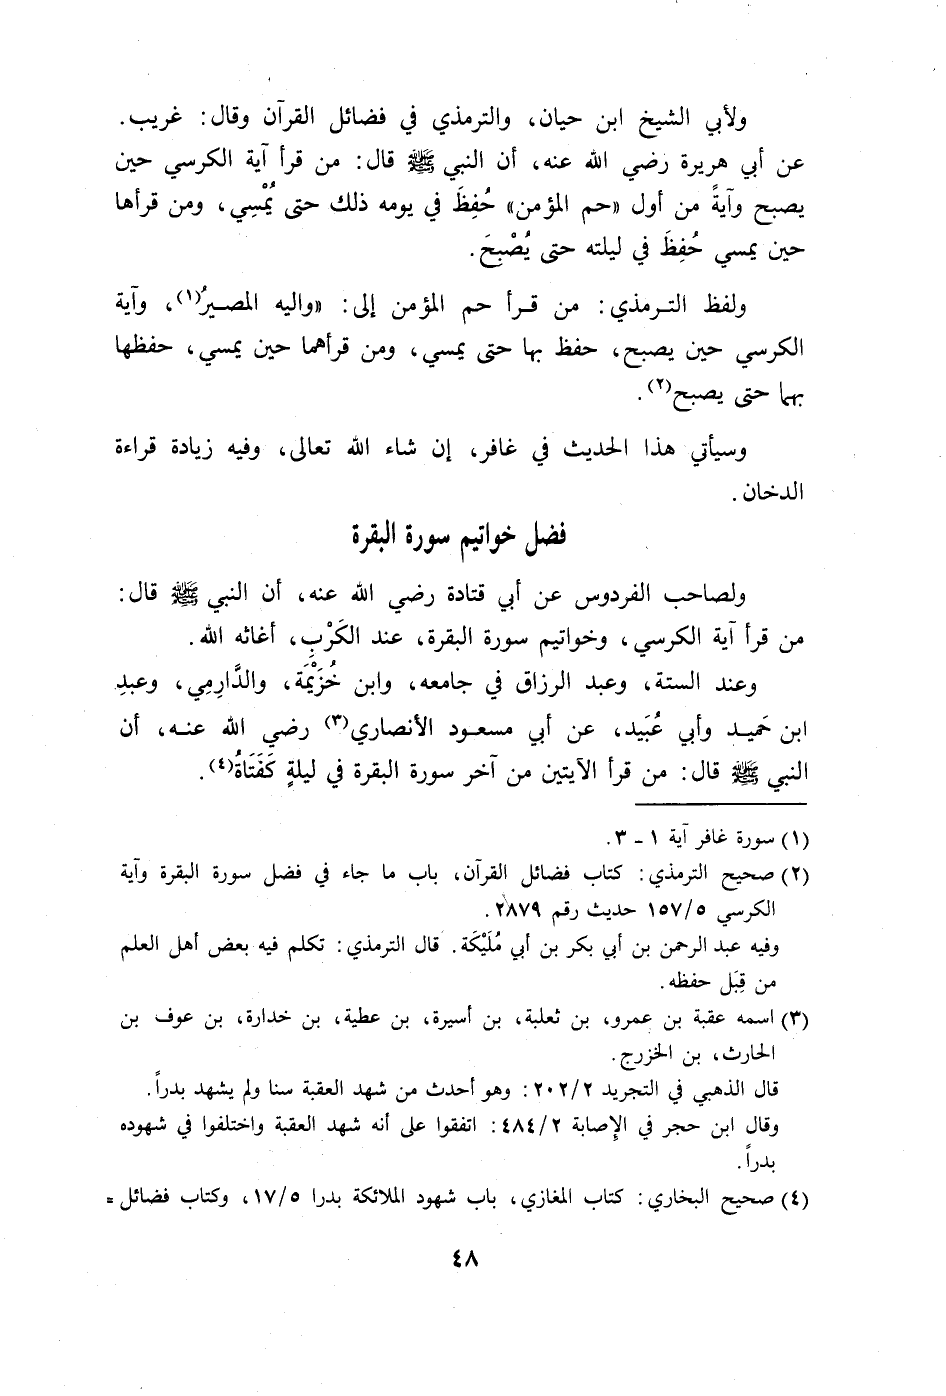 ولأبي الشيخ ابن حيان، والترمذي في فضائل القرآن وقال: غريب.
عن أبي هريرة رضي الله عنه، أن النبي ﷺ قال: من قرأ آية الكرسي حين
يصبح وآيةً من أول «حم المؤمن» حُفِظَ في يومه ذلك حتى يُمْسِي، ومن قرأها
حين يمسي حُفِظَ في ليلته حتى يُصْبِحَ.
ولفظ الترمذي: من قرأ حم المؤمن إلى: «واليه المصيرُ(١)، وآية
الكرسي حين يصبح، حفظ بها حتى يمسي، ومن قرأهما حين يمسي، حفظها
بهما حتى يصبح(٢).
وسيأتي هذا الحديث في غافر، إن شاء الله تعالى، وفيه زيادة قراءة
الدخان.
فضل خواتيم سورة البقرة
ولصاحب الفردوس عن أبي قتادة رضي الله عنه، أن النبي ﷺ قال:
من قرأ آية الكرسي، وخواتيم سورة البقرة، عند الكَرْبِ، أغاثه الله.
وعند الستة، وعبد الرزاق في جامعه، وابن خُزَيْمَة، والدَّارِمِي، وعبدِ
ابن حَميد وأبي عُبَيد، عن أبي مسعود الأنصاري(٣) رضي الله عنه، أن
النبي ﷺ قال: من قرأ الآيتين من آخر سورة البقرة في ليلةٍ كَفَتَاهُ(٤).
(١) سورة غافر آية ١ - ٣.
(٢) صحيح الترمذي: كتاب فضائل القرآن، باب ما جاء في فضل سورة البقرة وآية
الكرسي ١٥٧/٥ حديث رقم ٢٨٧٩.
وفيه عبد الرحمن بن أبي بكر بن أبي مُلَيْكَة. قال الترمذي: تكلم فيه بعض أهل العلم
من قِبَل حفظه.
(٣) اسمه عقبة بن عمرو، بن ثعلبة، بن أسيرة، بن عطية، بن خدارة، بن عوف بن
الحارث، بن الخزرج.
قال الذهبي في التجريد ٢٠٢/٢: وهو أحدث من شهد العقبة سنا ولم يشهد بدراً.
وقال ابن حجر في الإصابة ٤٨٤/٢: اتفقوا على أنه شهد العقبة واختلفوا في شهوده
بدراً.
(٤) صحيح البخاري: كتاب المغازي، باب شهود الملائكة بدرا ١٧/٥، وكتاب فضائل =
٤٨